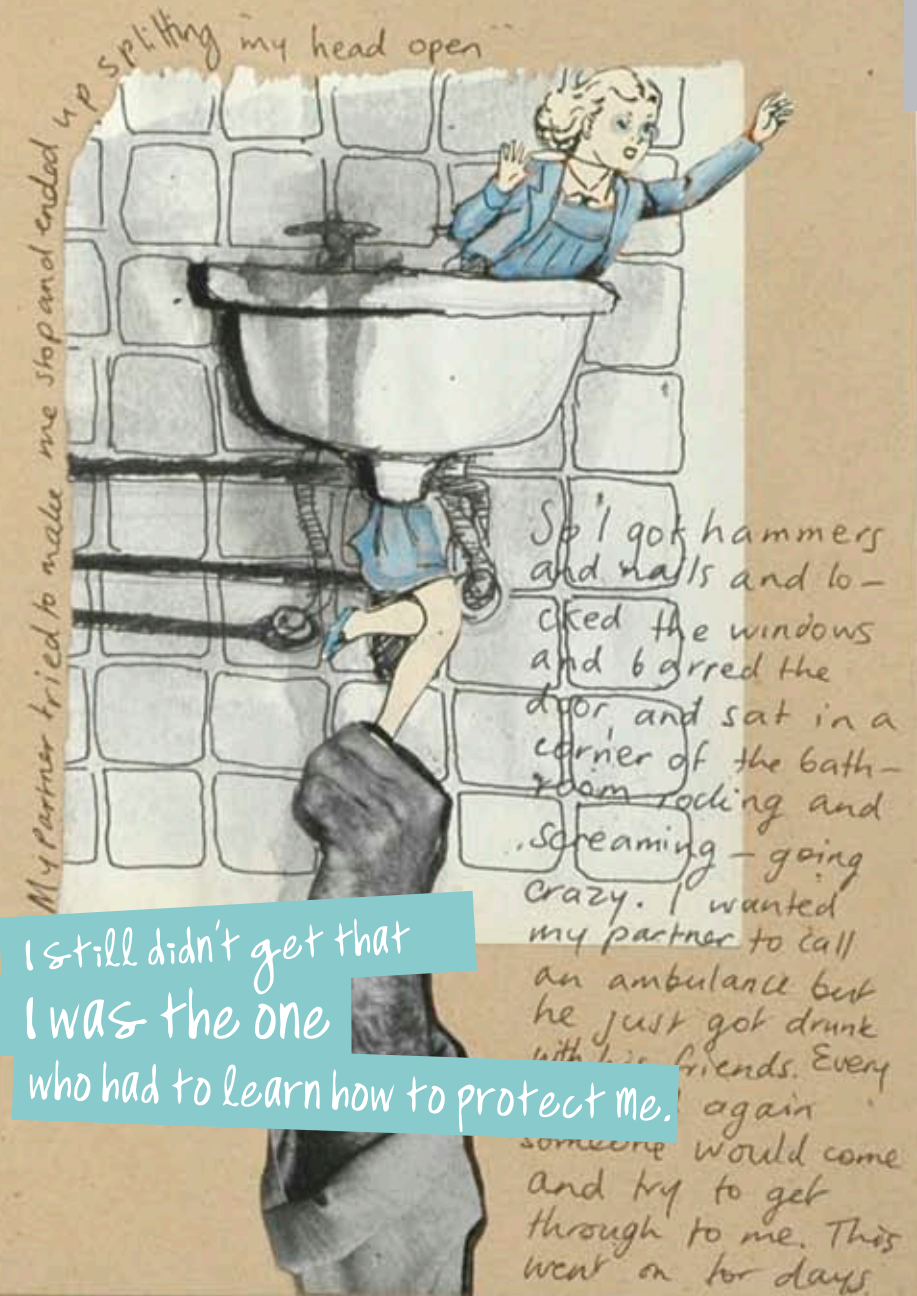 My partner tried to make me stop and ended up splitting my head open
So I got hammers
and nails and lo-
cked the windows
and barred the
door, and sat in a
corner of the bath-
room rocking and
screaming – going
crazy. I wanted
my partner to call
an ambulance but
he just got drunk
with his friends. Every
again
someone would come
and try to get
through to me. This
went on for days
I still didn't get that
I was the one
who had to learn how to protect me.